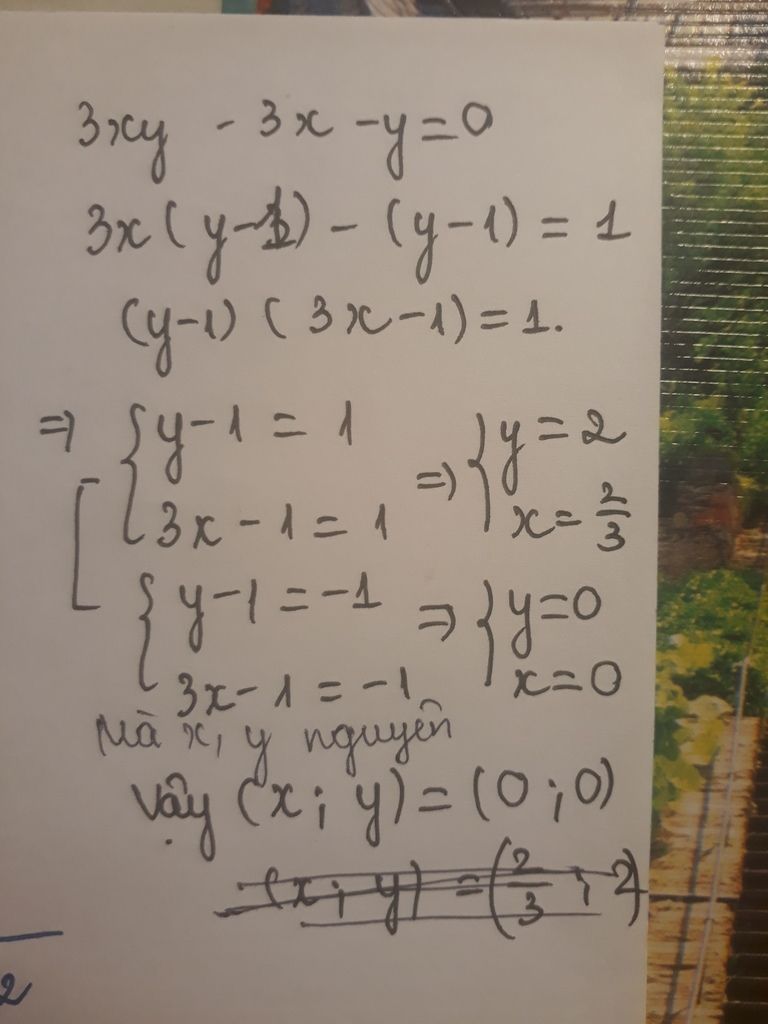 3xy - 3x - y = 0
3x(y-1) - (y-1) = 1
(y-1) (3x-1) = 1.
=> [ { y-1 = 1 => { y = 2
3x - 1 = 1 x = 2/3
{ y-1 = -1 => { y = 0
3x-1 = -1 x = 0
Mà x, y nguyên
Vậy (x; y) = (0; 0)
(x; y) = (2/3; 2)
2